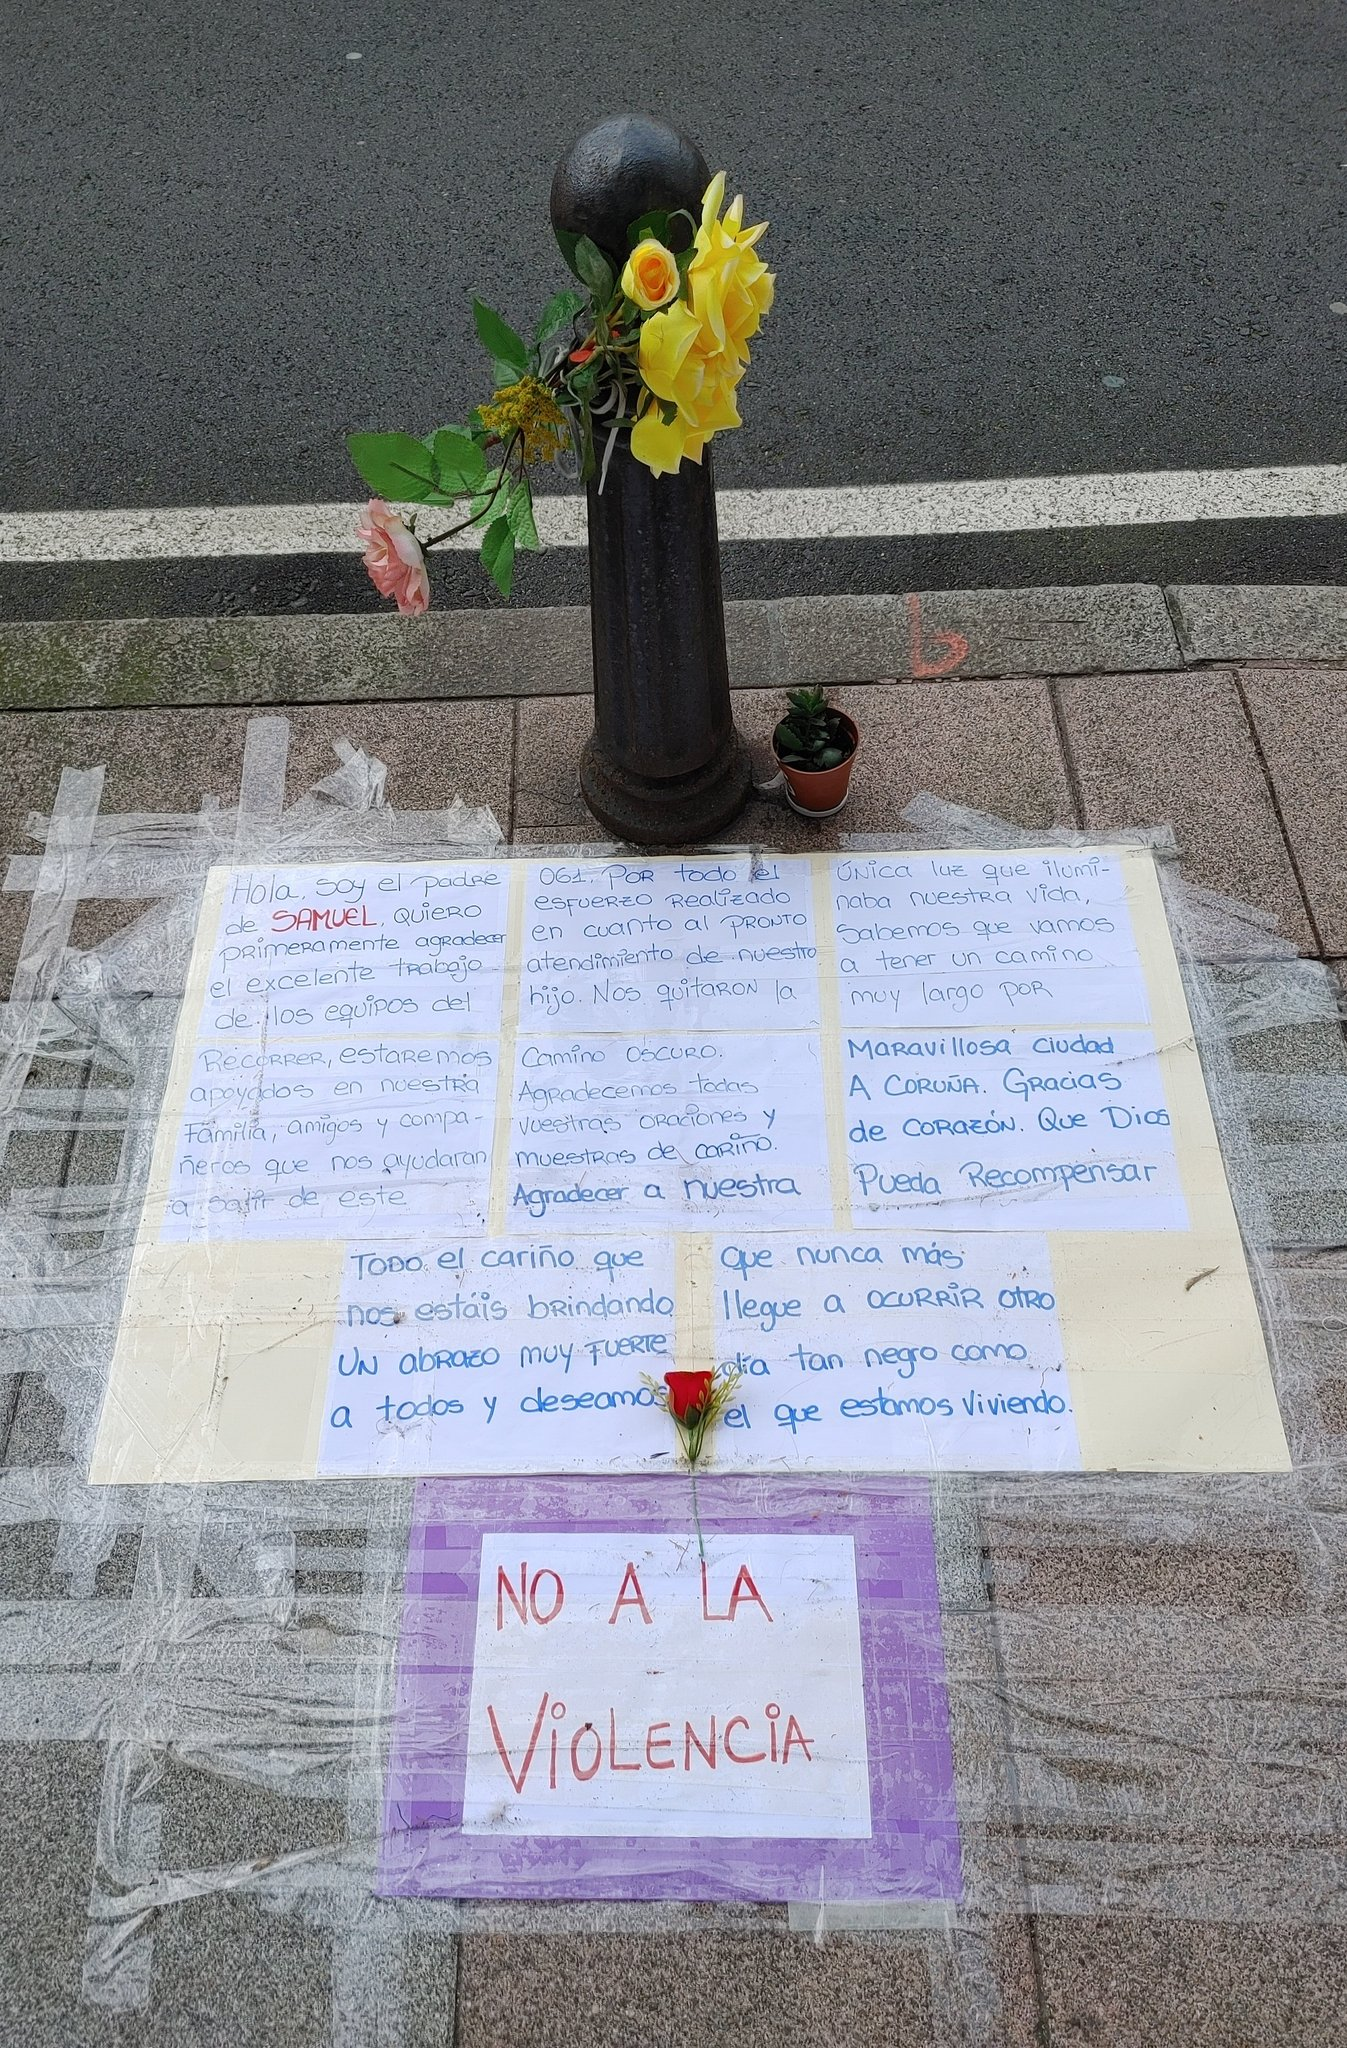 Hola, soy el padre
de SAMUEL, quiero
primeramente agradecer
el excelente trabajo
de los equipos del
061. Por todo el
esfuerzo realizado
en cuanto al pronto
atendimiento de nuestro
hijo. Nos quitaron la
única luz que ilumi-
naba nuestra vida,
sabemos que vamos
a tener un camino
muy largo por
Recorrer, estaremos
apoyados en nuestra
Familia, amigos y compa-
ñeros que nos ayudaran
a salir de este
Camino oscuro.
Agradecemos todas
vuestras oraciones y
muestras de cariño.
Agradecer a nuestra
Maravillosa ciudad
A CORUÑA. Gracias
de corazón. Que Dios
Pueda Recompensar
Todo el cariño que
nos estáis brindando
un abrazo muy fuerte
a todos y deseamos
que nunca más
llegue a ocurrir otro
día tan negro como
el que estamos viviendo.
NO A LA
VIOLENCIA
b